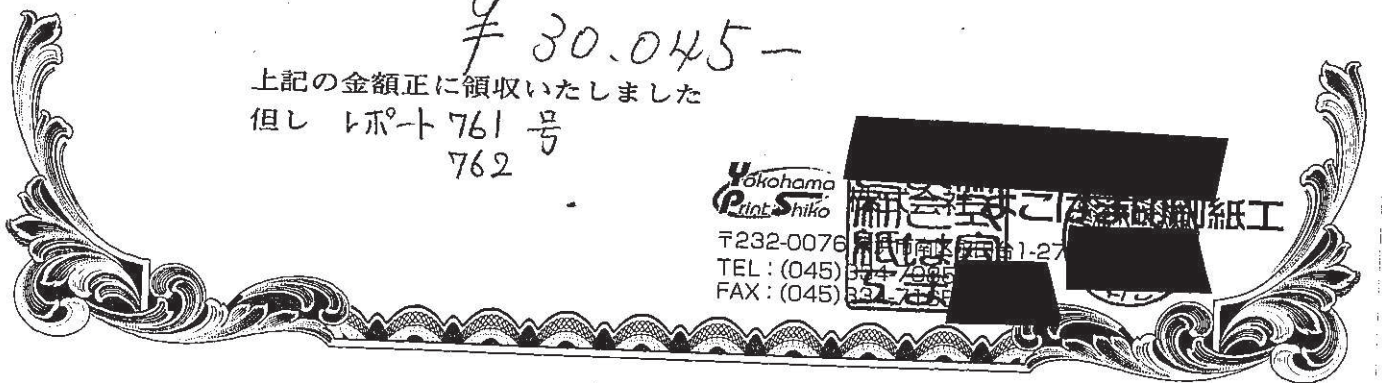 ¥ 30.045-
上記の金額正に領収いたしました
但し レポート 761 号
762
Yokohama
Print Shiko
株式会社よこはま印刷紙工
〒232-0076
TEL:(045)
FAX:(045)